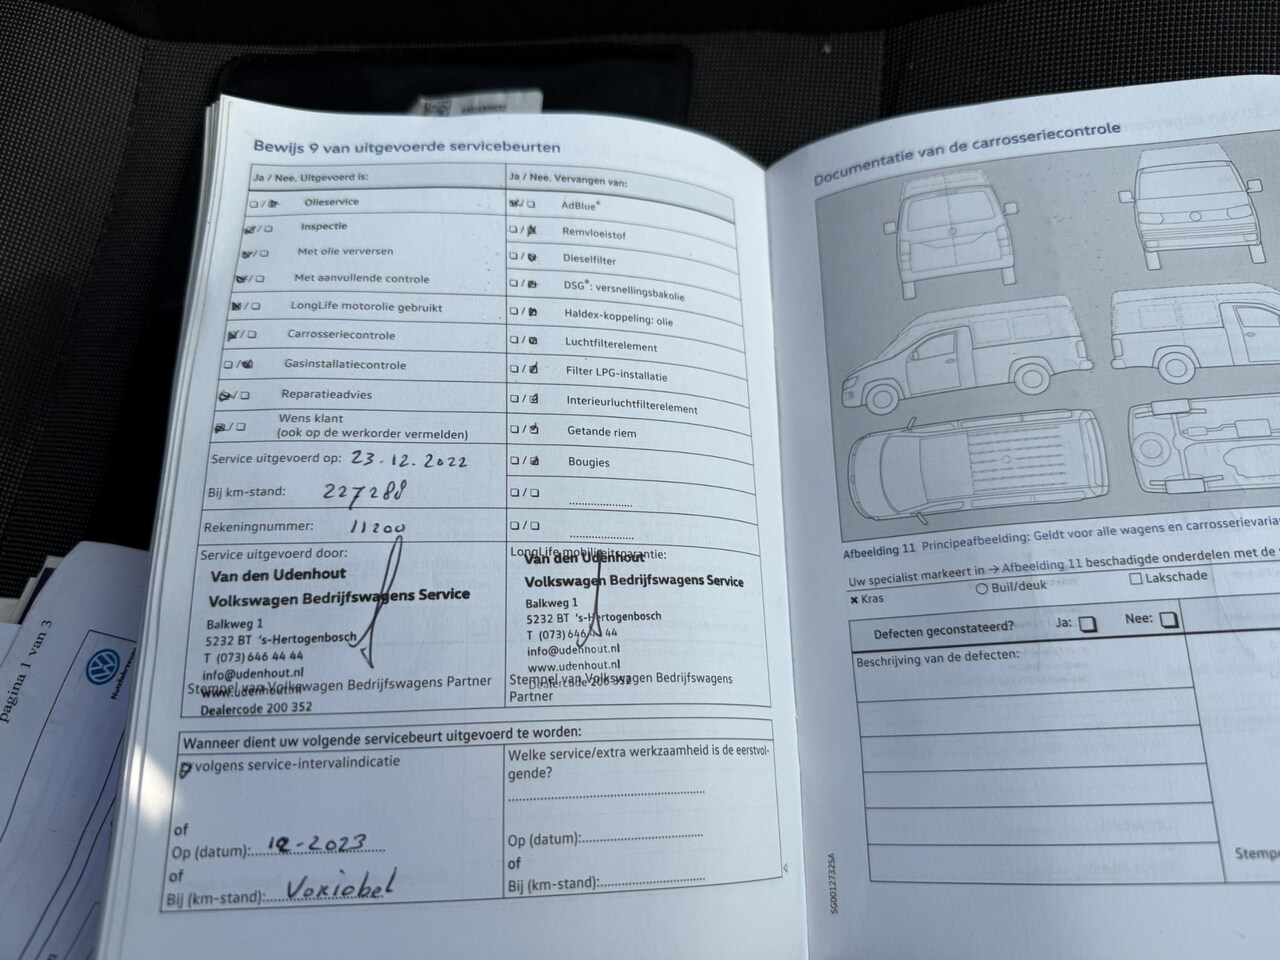 Bewijs 9 van uitgevoerde servicebeurten
Ja / Nee. Uitgevoerd is:
Olieservice
Inspectie
Met olie verversen
Met aanvullende controle
LongLife motorolie gebruikt
Carrosseriecontrole
Gasinstallatiecontrole
Reparatieadvies
Wens klant
(ook op de werkorder vermelden)
Service uitgevoerd op: 23.12.2022
Bij km-stand: 227288
Rekeningnummer: 11200
Service uitgevoerd door:
Van den Udenhout
Volkswagen Bedrijfswagens Service
Balkweg 1
5232 BT 's-Hertogenbosch
T (073) 646 44 44
info@udenhout.nl
www.udenhout.nl
Stempel van Volkswagen Bedrijfswagens Partner
Dealercode 200 352
Ja / Nee. Vervangen van:
AdBlue®
Remvloeistof
Dieselfilter
DSG®: versnellingsbakolie
Haldex-koppeling: olie
Luchtfilterelement
Filter LPG-installatie
Interieurluchtfilterelement
Getande riem
Bougies
LongLife mobiliteitsgarantie:
Van den Udenhout
Volkswagen Bedrijfswagens Service
Balkweg 1
5232 BT 's-Hertogenbosch
T (073) 646 44 44
info@udenhout.nl
www.udenhout.nl
Dealercode 200 352
Stempel van Volkswagen Bedrijfswagens
Partner
Wanneer dient uw volgende servicebeurt uitgevoerd te worden:
volgens service-intervalindicatie
of
Op (datum): 12-2023
of
Bij (km-stand): Variabel
Welke service/extra werkzaamheid is de eerstvol-
gende?
Op (datum):
of
Bij (km-stand):
Documentatie van de carrosseriecontrole
Afbeelding 11 Principeafbeelding: Geldt voor alle wagens en
Uw specialist markeert in → Afbeelding 11 beschadigde onderdelen met de
× Kras
Buil/deuk
Lakschade
Defecten geconstateerd? Ja: Nee:
Beschrijving van de defecten:
SG0012732SA
pagina 1 van 3